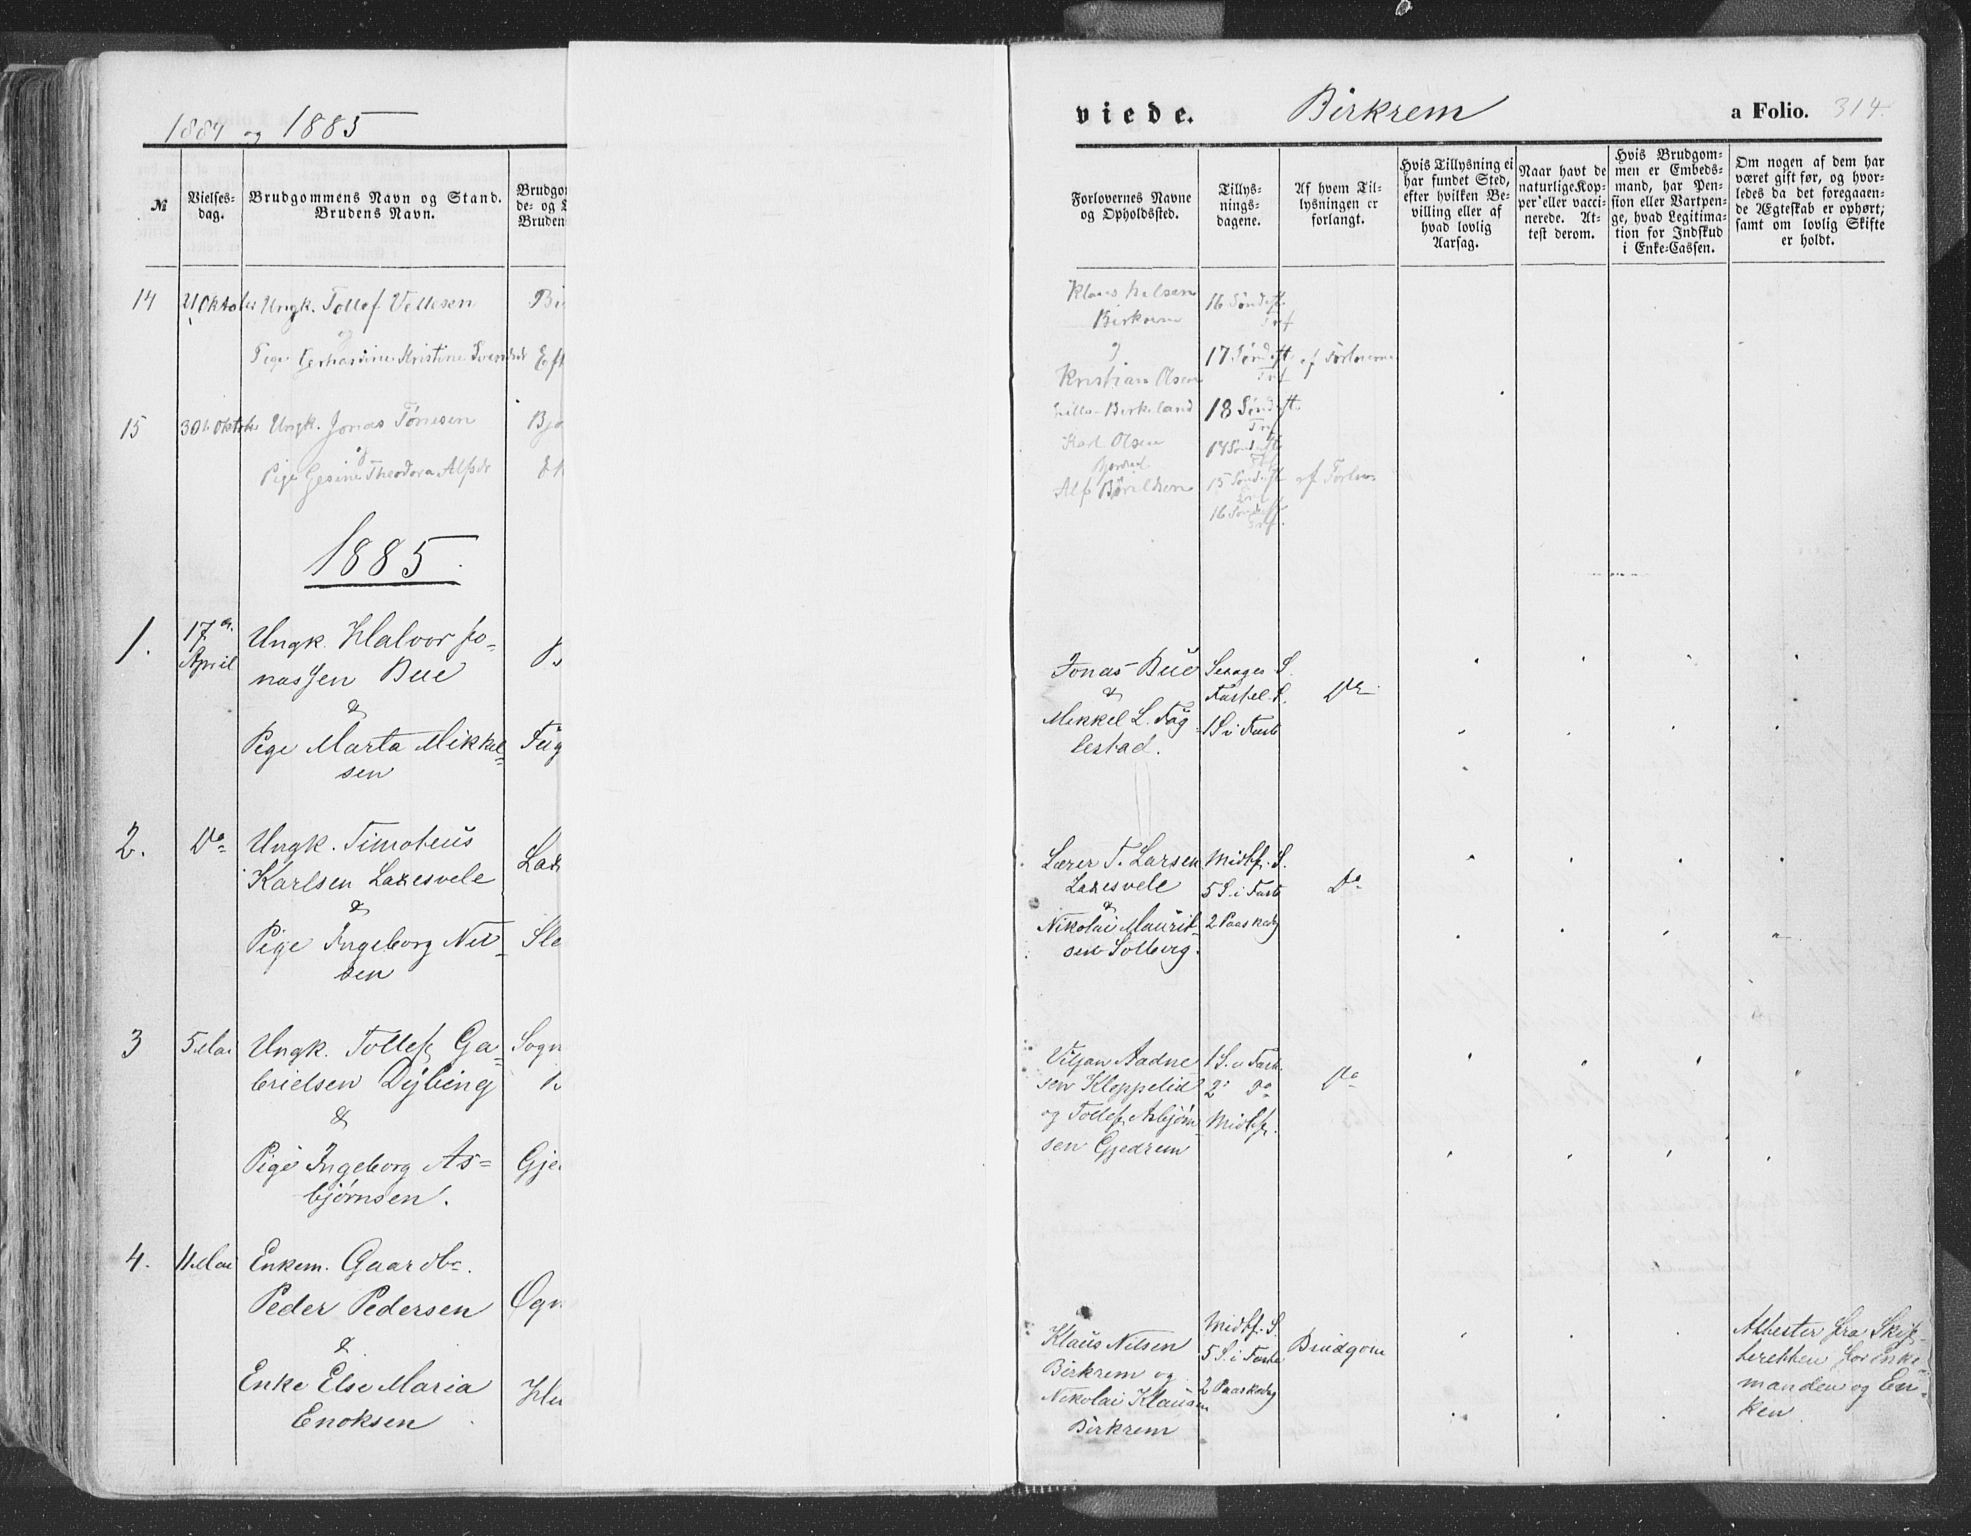 1884 og 1885
№
Vielses-
dag.
Brudgommens Navn og Stand.
Brudens Navn.
Brudgo
de- og
Bruden
14
21 Oktober
Ungk. Tollef Vellesen
Bi
og
Pige Gerhardine Kristine
Eft
15
30te Oktober
Ungk. Jonas Tønnesen
Bjo
og
Pige Gesine Theodora Alfsdr
1885.
1.
17de
April
Ungk. Halvor Jo-
nassen Bue
&
Pige Marta Mikkel-
sen
Fug
2.
Do
Ungk. Timoteus
Karlsen Laxesvele
Lax
&
Pige Ingeborg Nil-
sen
Sle
3
5 Mai
Ungk. Tollef Ga-
brielsen Dybing
Sogn
&
Pige Ingeborg As-
bjørnsen.
Gje
4.
11 Mai
Enkem. Gaardbr.
Peder Pedersen
Ogn
&
Enke Else Maria
Enoksen
viede.
Birkrem
a Folio. 314.
Forlovernes Navne
og Opholdssted.
Tillys-
nings-
dagene.
Af hvem Til-
lysningen er
forlangt.
Hvis Tillysning ei
har fundet Sted,
efter hvilken Be-
villing eller af
hvad lovlig
Aarsag.
Naar havt de
naturlige Kop-
per eller vacci-
nerede. At-
test derom.
Hvis Brudgom-
men er Embeds-
mand, har Pen-
sion eller Vartpen-
ge, hvad Legitima-
tion for Indskud
i Enke-Cassen.
Om nogen af dem har
været gift før, og hvor-
ledes da det foregaaen-
de Ægteskab er ophørt;
samt om lovlig Skifte
er holdt.
Klaus Nilsen
Birkrem
og
Kristian Olsen
Lille-Birkeland
16 Sønd. eft.
Tref
17 Sønd. eft.
Tref
18 Sønd. eft.
Tref
af Forloverne
Karl Olsen
Alf Bårdsen
14 Sønd. eft
Tref
15 Sønd. eft
Tref
16 Sønd. eft
Tref.
af Forlov.
Jonas Bue
&
Mikkel L. Fug-
lestad.
Sexages. S.
Fastel. S.
1 S. i Faste
Do
Lærer T. Larsen
Laxesvele
&
Nikolai Maurit-
sen Solberg.
Midtf. S.
5 S. i Faste
2 Paaskedag
Do
Viljan Aadne
sen Kloppelid
og Tollef Asbjørn-
sen Gjedrem
1 S. i Faste
2 Do
Midtf.
Do
Klaus Nilsen
Birkrem og
Nikolai Klausen
Birkrem
Midtf. S.
5 S. i Faste
2 Paaskedag
Brudgom
Attester fra Skif-
teretten for Enke-
manden og En-
ken.